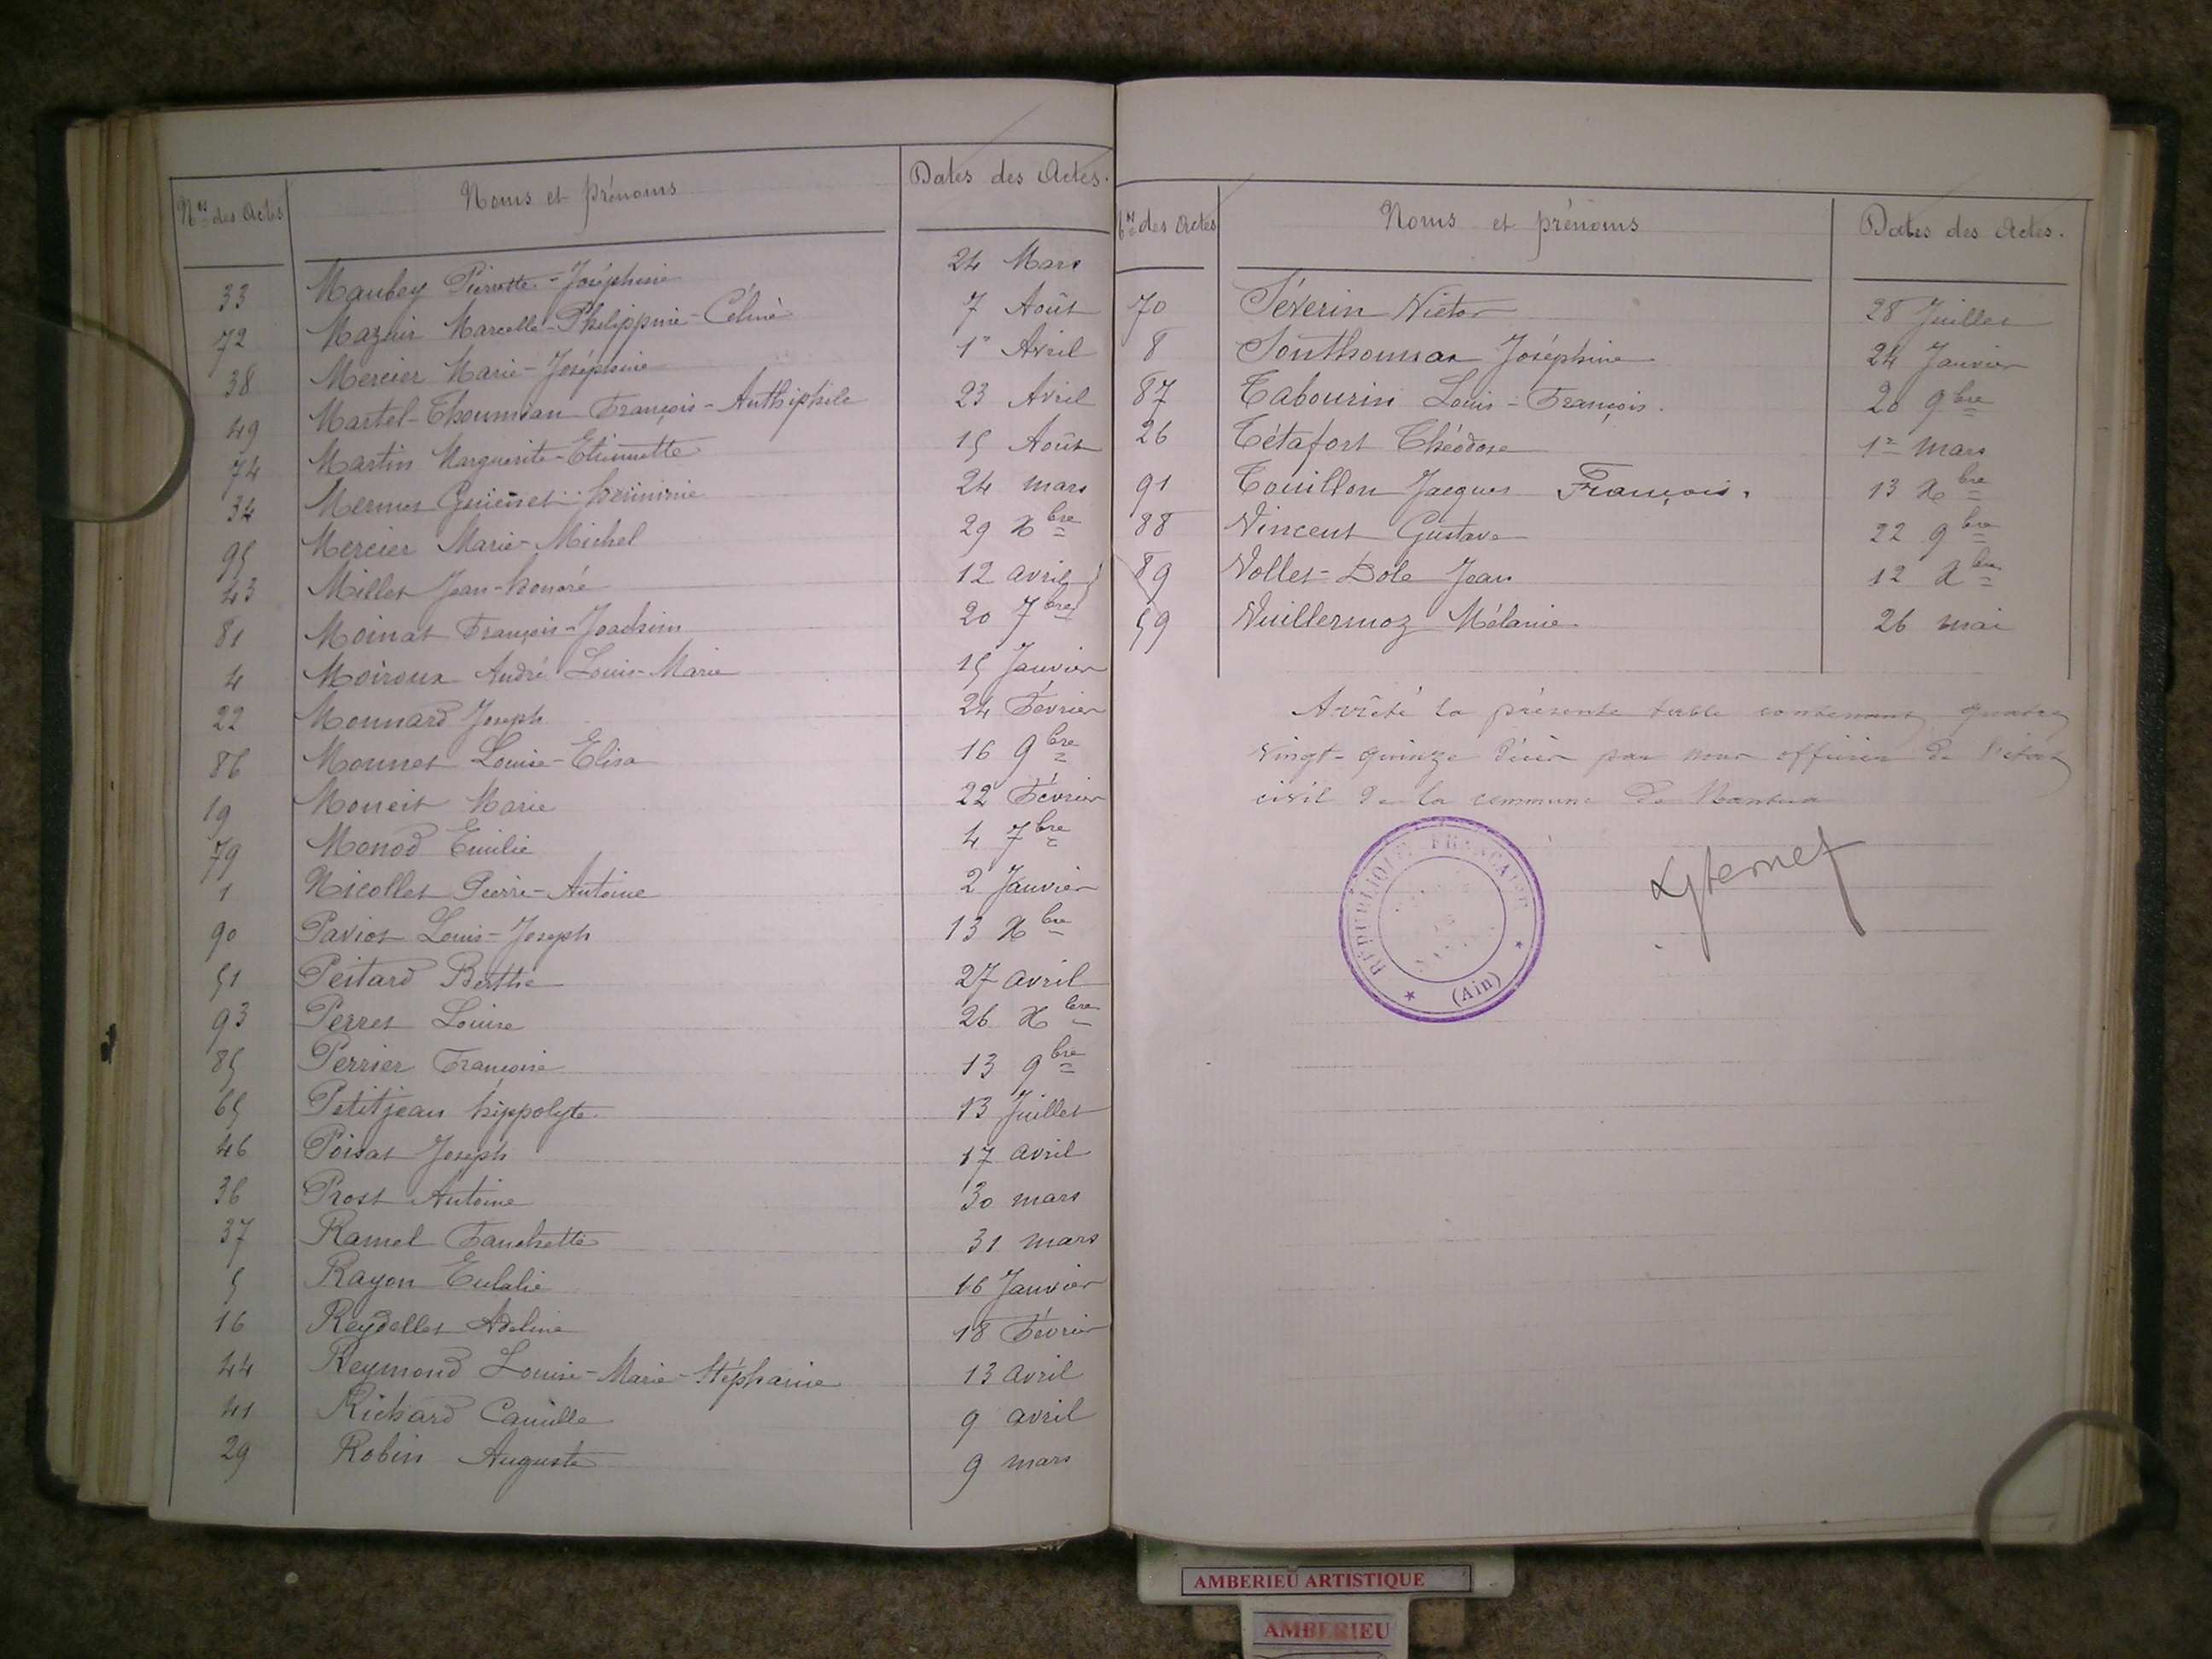 Nos des Actes Noms et prénoms Dates des Actes.
33 Maubey Pierrette-Joséphine 24 Mars
72 Mazuir Marcelle-Philippine-Céline 7 Août
38 Mercier Marie-Joséphine 1er Avril
49 Martel-Thoumian François- 23 Avril
74 Martin Marguerite-Etiennette 15 Août
34 Mermet herminie 24 mars
95 Mercier Marie-Michel 29 Xbre
43 Millet Jean-honoré 12 avril
81 Moinat François-Joachim 20 7bre
4 Moiroux André Louis-Marie 15 Janvier
22 Monnard Joseph 24 Février
86 Monnet Louise-Elisa 16 9bre
19 Marie 22 Février
79 Monod Emilie 4 7bre
1 Nicollet Pierre-Antoine 2 Janvier
90 Paviot Louis-Joseph 13 Xbre
51 Peitard Berthe 27 avril
93 Perret Louise 26 Xbre
85 Perrier Françoise 13 9bre
65 Petitjean hippolyte 13 Juillet
46 Poisat Joseph 17 avril
36 Prost Antoine 30 mars
37 Ramel Fanchette 31 mars
5 Rayon Eulalie 16 Janvier
16 Reydellet Adeline 18 Février
44 Reymond Louise-Marie-Stéphanie 13 avril
41 Richard Camille 9 avril
29 Robin Auguste 9 mars
Nos des Actes Noms et prénoms Dates des Actes.
70 Séverin Victor 28 Juillet
8 Sonthonnax Joséphine 24 Janvier
87 Tabourin Louis-François. 20 9bre
26 Tétafort Théodore 1er mars
91 Touillon Jacques François. 13 Xbre
88 Vincent Gustave 22 9bre
89 Vollet-Dole Jean 12 Xbre
59 Vuillermoz Mélanie 26 mai
Arrêté la présente table contenant quatre
vingt-quinze décès par nous officier de l'état
civil de la commune de Nantua
RÉPUBLIQUE FRANÇAISE
(Ain)
AMBERIEU ARTISTIQUE
AMBERIEU